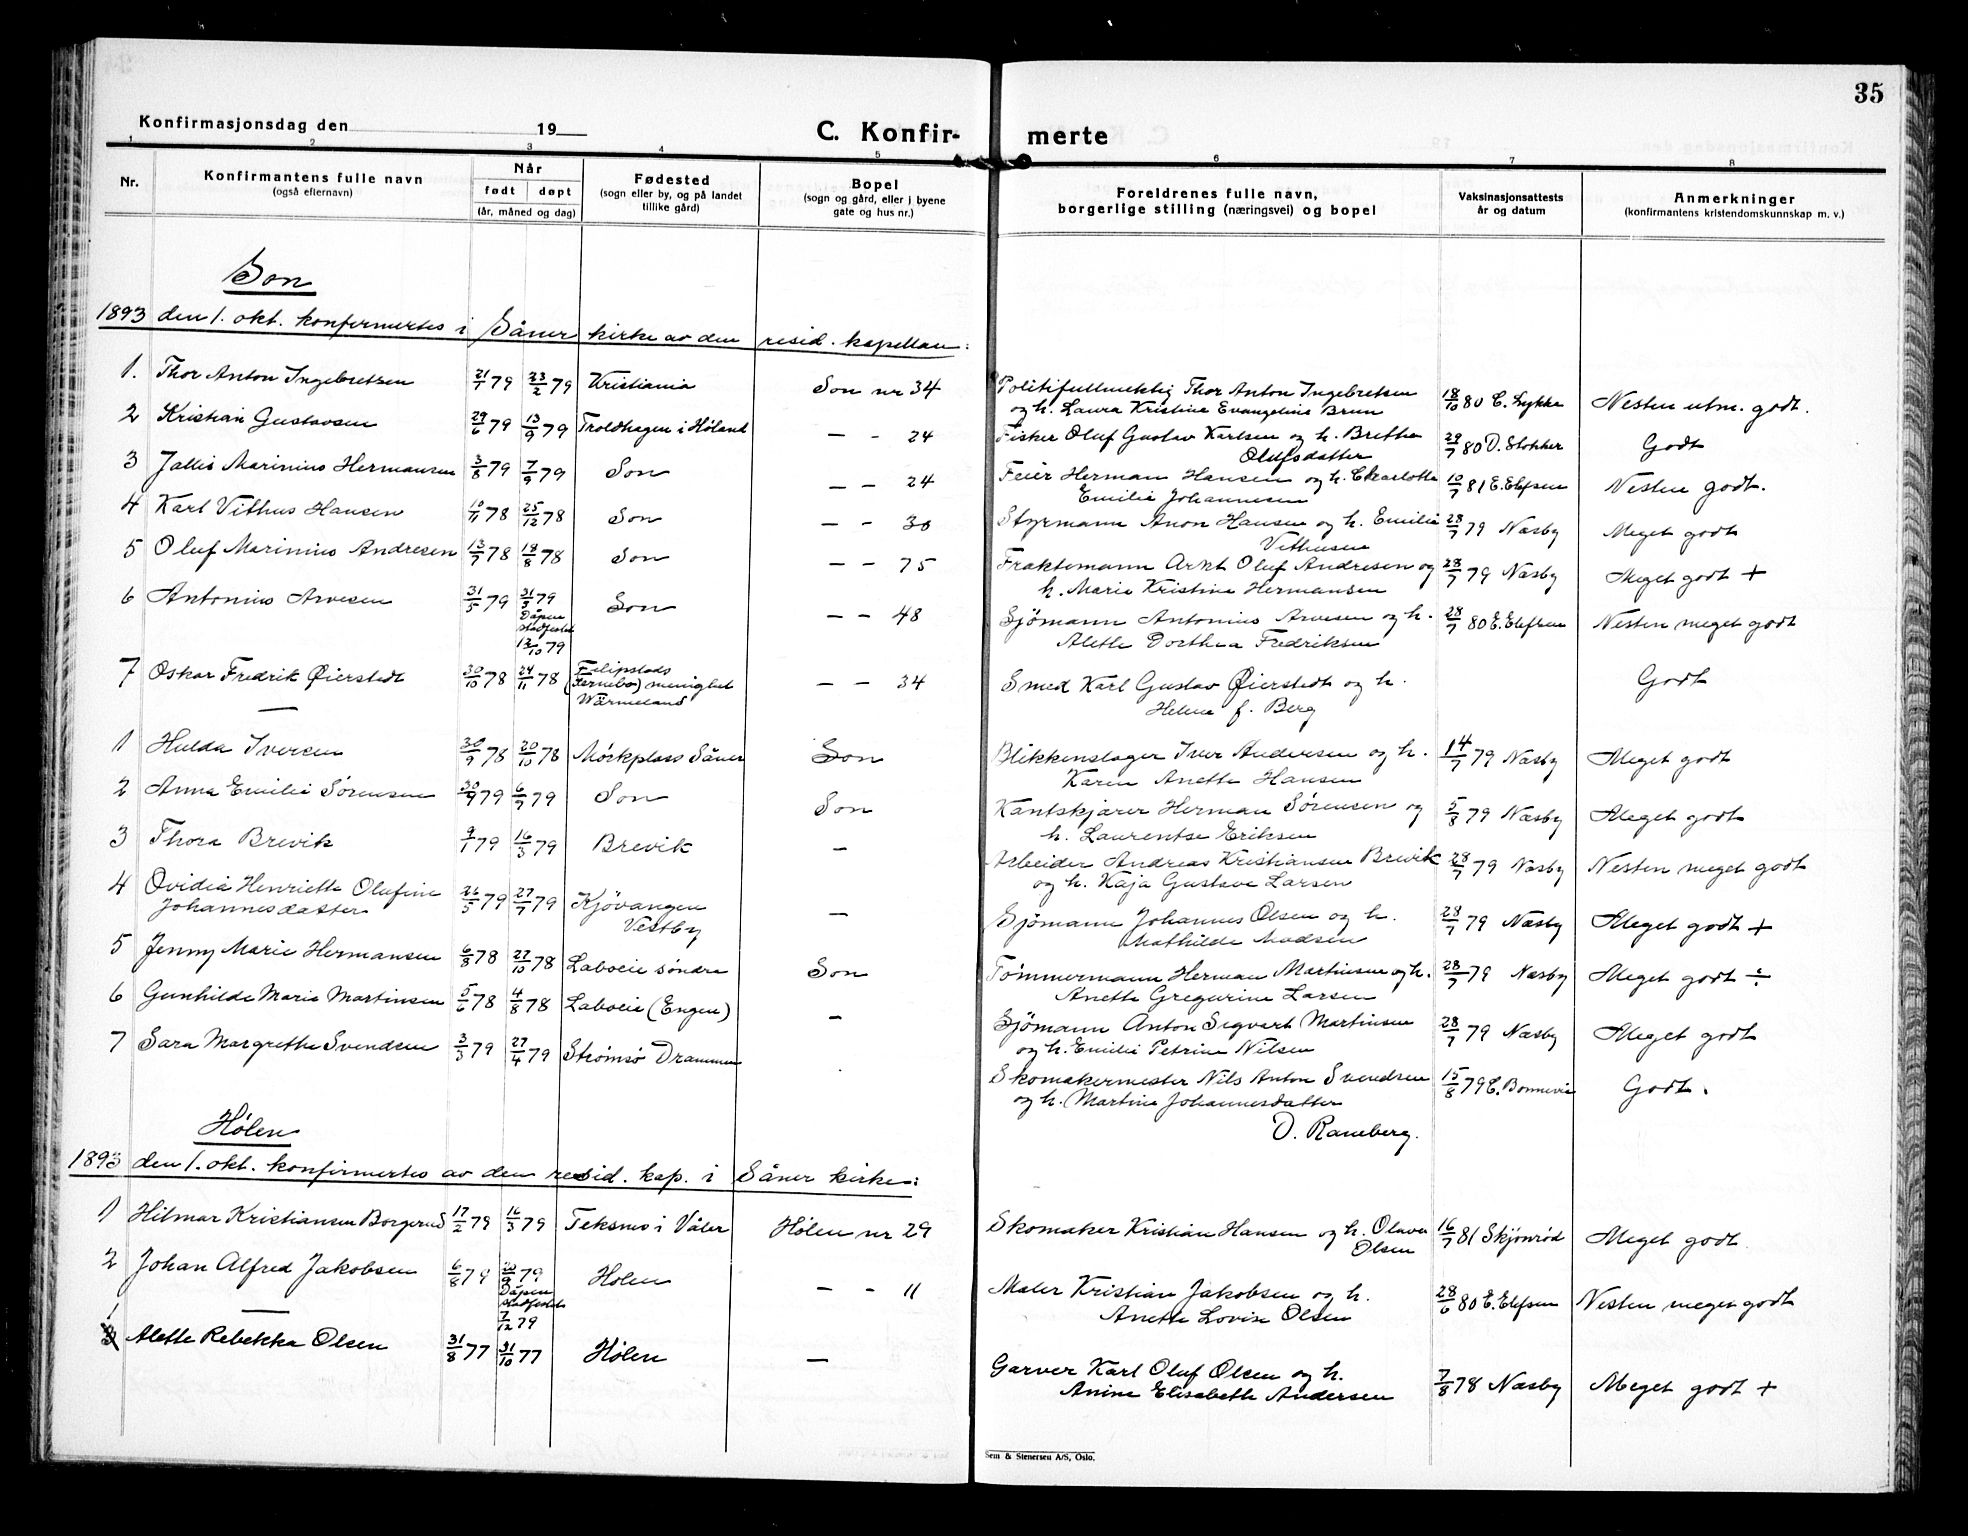 35
Konfirmasjonsdag den 19
C. Konfir- merte
1 2 3 4 5 6 7 8
Nr. Konfirmantens fulle navn (også efternavn) Når født døpt (år, måned og dag) Fødested (sogn eller by, og på landet tillike gård) Bopel (sogn og gård, eller i byene gate og hus nr.) Foreldrenes fulle navn, borgerlige stilling (næringsvei) og bopel Vaksinasjonsattests år og datum Anmerkninger (konfirmantens kristendomskunnskap m. v.)
Son
1893 den 1. okt. konfirmertes i Såner kirke av den resid. kapellan:
1. Thor Anton Ingebretsen 21/1 79 23/2 79 Kristiania Son nr 34 Politifullmektig Thor Anton Ingebretsen 18/10 80 C. Lykke Nesten utm. godt.
og h. Laura Kristine Evangeline Brun
2 Kristian Gustavsen 29/6 79 13/9 79 Troldhagen i Høland — - 24 Fisker Oluf Gustav Karlsen og h. Brethe 29/7 80 D. Stokker Godt
Olufsdatter
3 Jallis Marinius Hermansen 3/8 79 7/9 79 Son — - 24 Feier Herman Hansen og h. Charlotte 10/7 81 E. Elefsen Nesten godt.
Emilie Johannesen
4 Karl Vithus Hansen 10/11 78 25/12 78 Son — - 30 Styrmann Anon Hansen og h. Emilie 28/7 79 Næsby Meget godt
Vethusen
5 Oluf Marinius Andresen 13/7 78 18/8 78 Son — - 75 Fraktemann Arnt Oluf Andresen og 28/7 79 Næsby Meget godt +
h. Marie Kristine Hermansen
6 Antonius Arvesen 31/5 79 31/5 79 Son — - 48 Sjömann Antonius Arvesen og h. 28/7 80 E. Elefsen Nesten meget godt
Dåpen stadfestet 12/10 79 Alette Dorthea Fredriksen
7 Oskar Fredrik Øierstedt 30/10 78 24/11 78 Filipstads (Fernebo) menighet Wärmeland — - 34 Smed Karl Gustav Øierstedt og h. Godt
Helene f. Berg
—
1 Hulda Iversen 30/9 78 20/10 78 Mörkplass Såner Son Blikkenslager Iver Andersen og h. 14/7 79 Næsby Meget godt
Karen Anette Hansen
2 Anna Emilie Sørensen 79 6/7 79 Son Son Kantskjærer Herman Sørensen og 5/8 79 Næsby Meget godt
h. Laurentse Eriksen
3 Thora Brevik 9/1 79 16/3 79 Brevik — Arbeider Andreas Kristiansen Brevik 28/7 79 Næsby Nesten meget godt
og h. Kaja Gustave Larsen
4 Ovidia Henriette Olufine 26/5 79 27/7 79 Kjövangen — Sjömann Johannes Olsen og h. 28/7 79 Næsby Meget godt +
Johannesdatter Vestby Mathilde Madsen
5 Jenny Marie Hermansen 6/8 78 27/10 78 Laboeie söndre Son Tömmermann Herman Martinsen og h. 28/7 79 Næsby Meget godt ÷
Anette Gregorine Larsen
6 Gunhilde Marie Martinsen 5/6 78 4/8 78 Laboeie (Engen) — Sjömann Anton Segvart Martinsen 28/7 79 Næsby Meget godt
og h. Emilie Petrine Nilsen
7 Sara Margrethe Svendsen 3/3 79 27/4 79 Strömsö Drammen Skomakermester Nils Anton Svendsen 15/8 79 C. Bonnevie Godt.
og h. Martine Johannesdatter
D. Ramberg.
Hölen
1893 den 1. okt. konfirmertes av den resid. kap. i Såner kirke:
1 Hilmar Kristiansen Borgerud 17/2 79 16/3 79 Teksnes i Våler Hölen nr 29 Skomaker Kristian Hansen og h. Olava 16/7 81 Skjönröd Meget godt
Olsen
2 Johan Alfred Jakobsen 6/8 79 79 Hölen — - 11 Maler Kristian Jakobsen og h. 28/6 80 E. Elefsen Nesten meget godt
Dåpen stadfestet 7/12 79 Anette Lovise Olsen
—
1 Alette Rebekka Olsen 31/8 77 31/10 77 Hölen — Garver Karl Oluf Olsen og h. 7/8 78 Næsby Meget godt +
Anine Elisabeth Andersen
Sem & Stenersen A/S, Oslo.